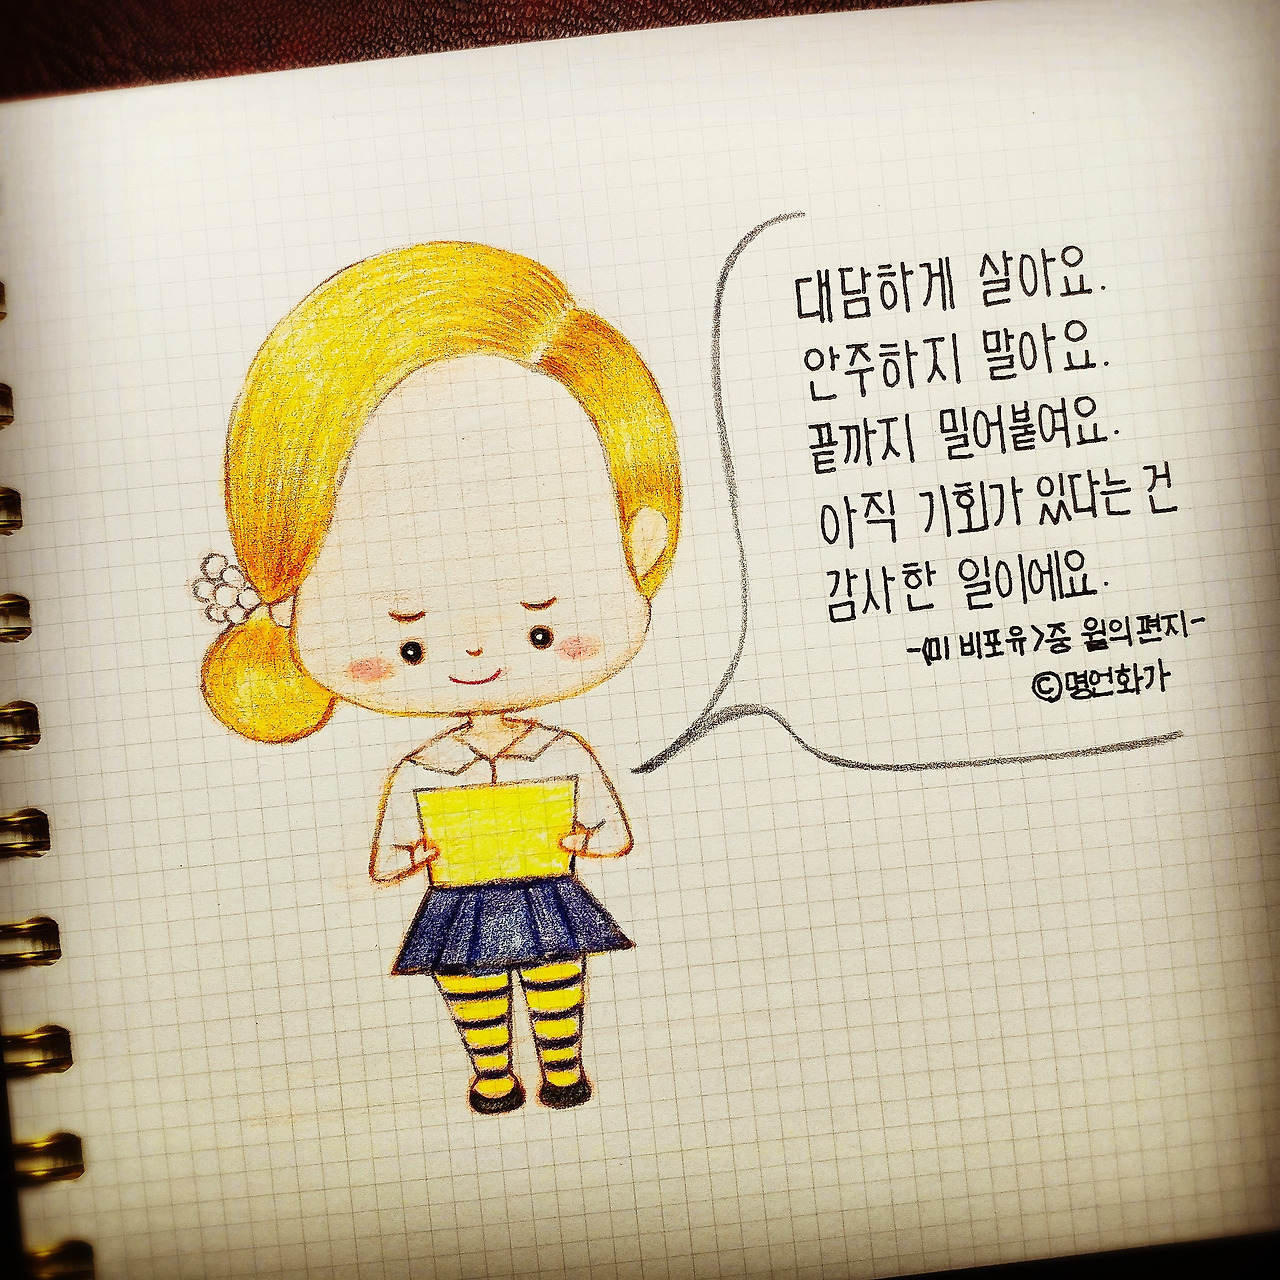 대담하게 살아요.
안주하지 말아요.
끝까지 밀어붙여요.
아직 기회가 있다는 건
감사한 일이에요.
-<미 비포유>중 윌의편지-
©명언화가